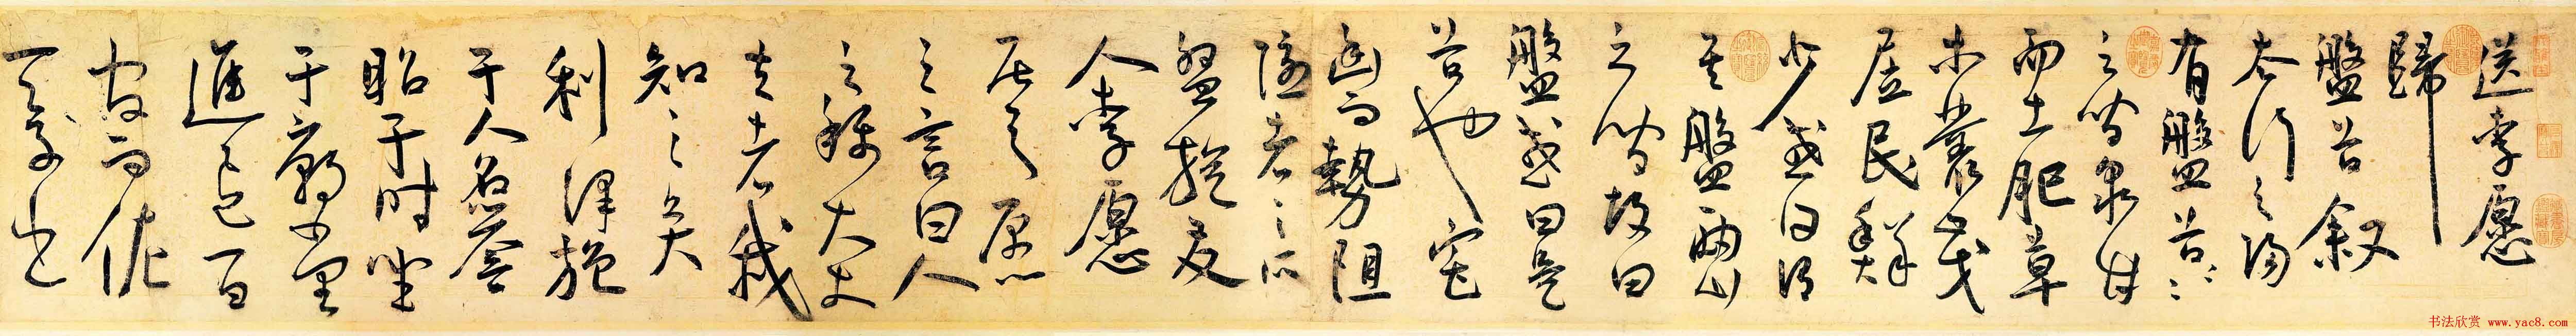 送李愿
歸
盤谷叙
太行之陽
有盤谷谷
之間泉甘
而土肥草
木叢茂
居民鮮
少或曰謂
其盤兩山
之間故曰
盤或曰是
谷也宅
幽而勢阻
隱者之所
盤旋友
人李愿
居之愿
之言曰人
之稱大丈
夫者我
知之矣
利澤施
于人名譽
昭于時坐
于廟堂
進退百
官而佐
天子出
书法欣赏 www.yac8.com